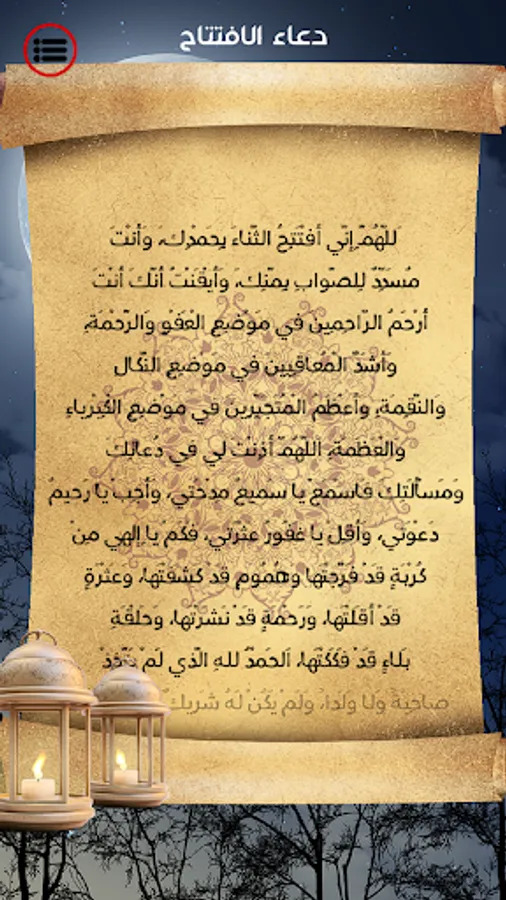 دعاء الافتتاح
للّهُمَّ إِنّي أَفْتَتِحُ الثَّناءَ بِحَمْدِكَ، وَأَنْتَ
مُسَدِّدٌ لِلصَّوابِ بِمَنِّكَ، وَأَيْقَنْتُ أَنَّكَ أَنْتَ
أَرْحَمُ الرّاحِمينَ في مَوْضِعِ الْعَفْوِ وَالرَّحْمَةِ،
وَأَشَدُّ الْمُعاقِبينَ في مَوْضِعِ النَّكالِ
وَالنَّقِمَةِ، وَأَعْظَمُ الْمُتَجَبِّرينَ في مَوْضِعِ الْكِبْرِياءِ
وَالْعَظَمَةِ، اَللّهُمَّ أَذِنْتَ لي في دُعائِكَ
وَمَسْأَلَتِكَ فَاسْمَعْ يا سَميعُ مِدْحَتي، وَأَجِبْ يا رَحيمُ
دَعْوَتي، وَأَقِلْ يا غَفُورُ عَثْرَتي، فَكَمْ يا إِلهي مِنْ
كُرْبَةٍ قَدْ فَرَّجْتَها وَهُمُومٍ قَدْ كَشَفْتَها، وَعَثْرَةٍ
قَدْ أَقَلْتَها، وَرَحْمَةٍ قَدْ نَشَرْتَها، وَحَلْقَةِ
بَلاءٍ قَدْ فَكَكْتَها، اَلحَمْدُ للهِ الَّذي لَمْ يَتَّخِذْ
صاحِبَةً وَلا وَلَداً، وَلَمْ يَكُنْ لَهُ شَريكٌ